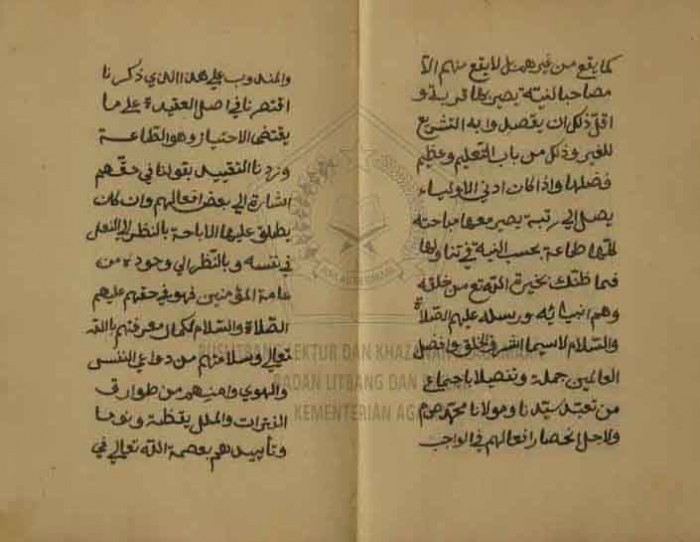 كما يقع من غيرهم بل لا يقع منهم الا
مصاحبا لنية يصير بها قربة و
اقل ذلك ان يقصدوا به التشريع
للغير وذلك من باب التعليم وعظيم
فضلها واذا كان ادنى الاولياء
يصل الى رتبة يصير معها مباحته
كلها طاعة بحسب النية في تناولها
فما ظنك بخيرة الله تع من خلقه
وهم انبيائه ورسله عليهم الصلاة
والسلام لاسيما اشرف الخلق وافضل
العالمين جملة وتفصيلا باجماع
من يعتد سيدنا ومولانا محمد صم
ولاجل انحصار افعالهم في الواجب
والمندوب على هذا الذي ذكرنا
اقتصرنا في اصل العقيدة على ما
يقتضى الاحتياز وهو الطاعة
وزدنا التقييد بقولنا في حقهم
اشارة الى بعض افعالهم وان كان
يطلق عليها الاباحة بالنظر الى الفعل
في نفسه وبالنظر الى وجوده من
عامة المؤمنين فهو في حقهم عليهم
الصلاة والسلام لكمال معرفتهم بالله
تعالى وسلامتهم من دواعي النفس
والهوى وامنهم من طوارق
الفترات والملل يقظة ونوما
وتأييدهم بعصمة الله تعالى في
PUSLITBANG LEKTUR DAN KHAZANAH
BADAN LITBANG DAN
KEMENTERIAN AGAMA